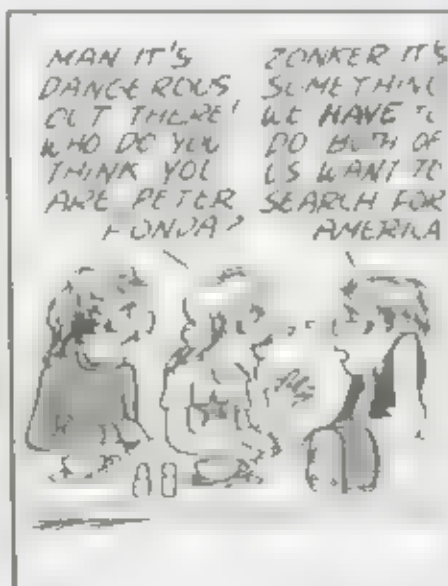 MAN IT'S
DANGEROUS
OUT THERE!
WHO DO YOU
THINK YOU
ARE PETER
FONDA?
ZONKER IT'S
SOMETHING
WE HAVE TO
DO BOTH OF
US WANT TO
SEARCH FOR
AMERICA